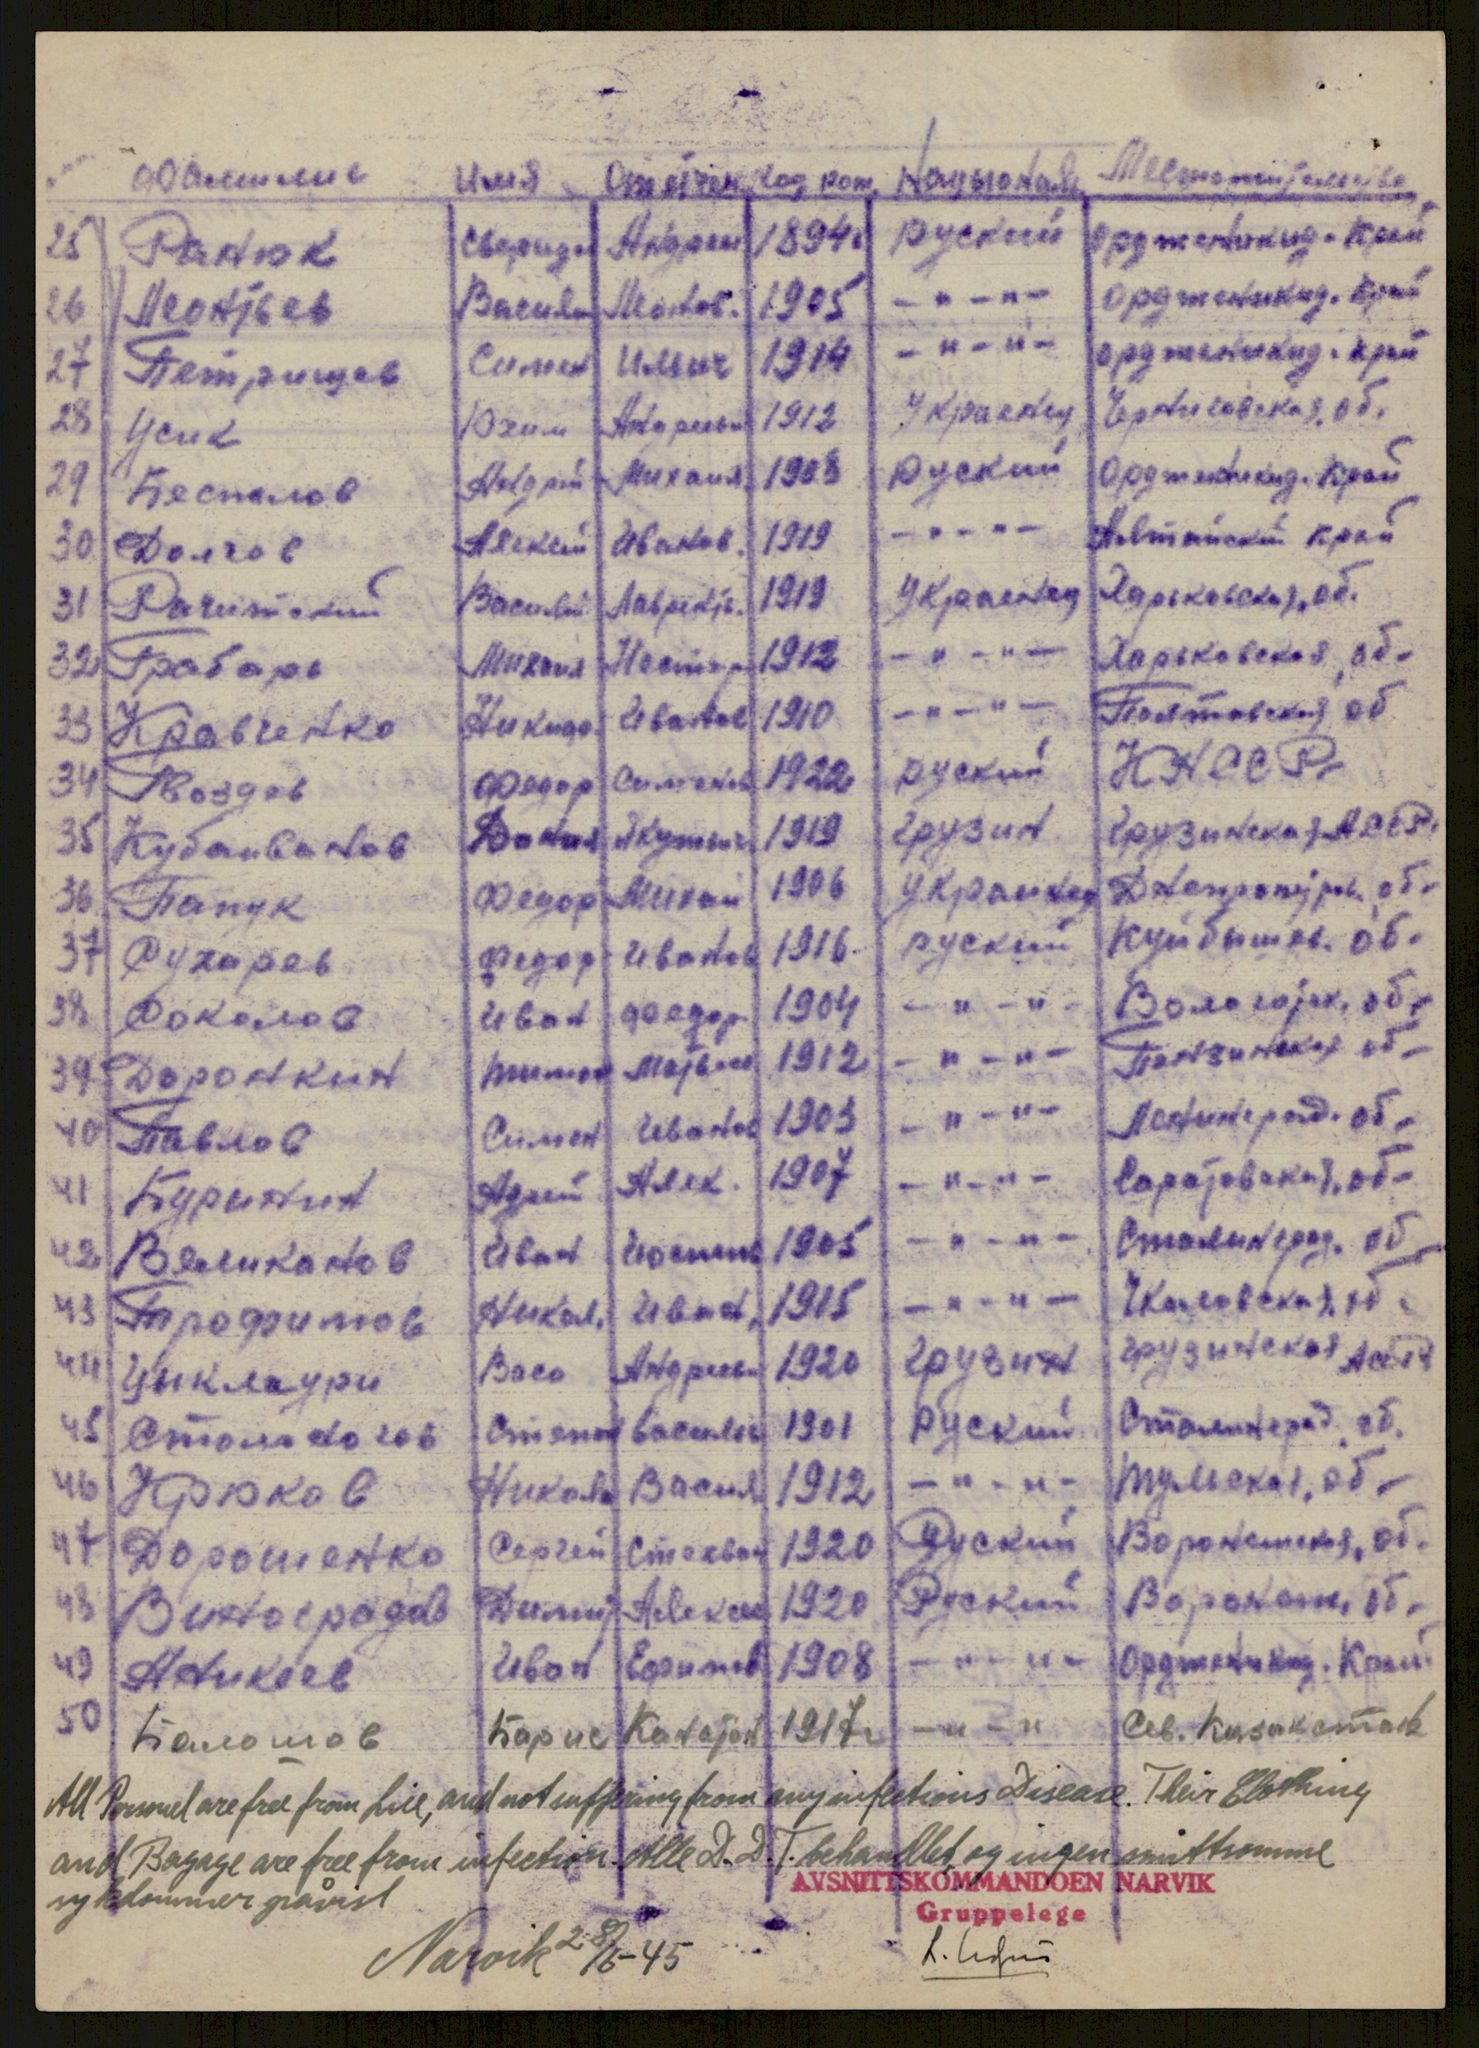 Фамилие Имя Отечен Год рож. Национал. Местожительство
25 Ранюк Сверид. Андреи 1894г руский орджоникид. Край
26 Леонтьев Васили Леонов. 1905 -"-"- орджоникид. край
27 Петрищев Симен Ильич 1914 -"-"- орджоникид. край
28 Усик Юхим Андреев 1912 Украенец Черниговская, об.
29 Беспалов Андрей Михаил. 1908 руский Орджоникид. Край
30 Долгов Алексей Иванов. 1919 -"-"- Алтайский край
31 Василий Лавренть. 1919 Украенец Харьковская, об.
32 Грабарь Михаил Нестор 1912 -"-"- Харьковская, об.
33 Кравченко Никидо. Иванов 1910 -"-"- Полтовская об
34 Гвоздев Федор Сименов 1922 руский
35 Кубаиванов Данил 1919 грузин Грузинская АССР.
36 Папук Федор Михаи 1906 украинец Днепропетров. об.
37 Сухарев Федор Иванов 1916 руский Куйбышев. об.
38 Соколов Иван Федор 1904 -"-"- Вологотск. об.
39 Доронкин Тимон Матвеи 1912 -"-"- Панзинская об.
40 Павлов Симен Иванов 1903 -"-"- Ленинград. об.
41 Буринин Адрей Алек. 1907 -"-"- Саратовская, об.
42 Великанов Иван Иосипов 1905 -"-"- Сталинград. об
43 Трофимов Никол. Иван. 1915 -"-"- Чкаловская, об.
44 Цыклаури Васо Андреев 1920 Грузин Грузинская АССР
45 Степан Василич 1901 Руский Сталинград. об.
46 Крюков Никола Васил 1912 -"-"- Тульская, об.
47 Дорошенко Сергей Стехван 1920 Руский Воронешская, об.
48 Виноградов Димит Алексее 1920 Руский Воронеш. об.
49 Аникеев Иван Ефимов 1908 -"-"- Орджоникид. Край
50 Балошов Барис 1917г -"-" Сев. Казакстан
All Personel are free from Lice, and not suffering from any infectious Disease. Their Clothing
and Bagage are free from infection. Alle D.D.T. behandlet og ingen smittsomme
sykdommer påvist
AVSNITTSKOMMANDOEN NARVIK
Gruppelege
Narvik 28/6-45